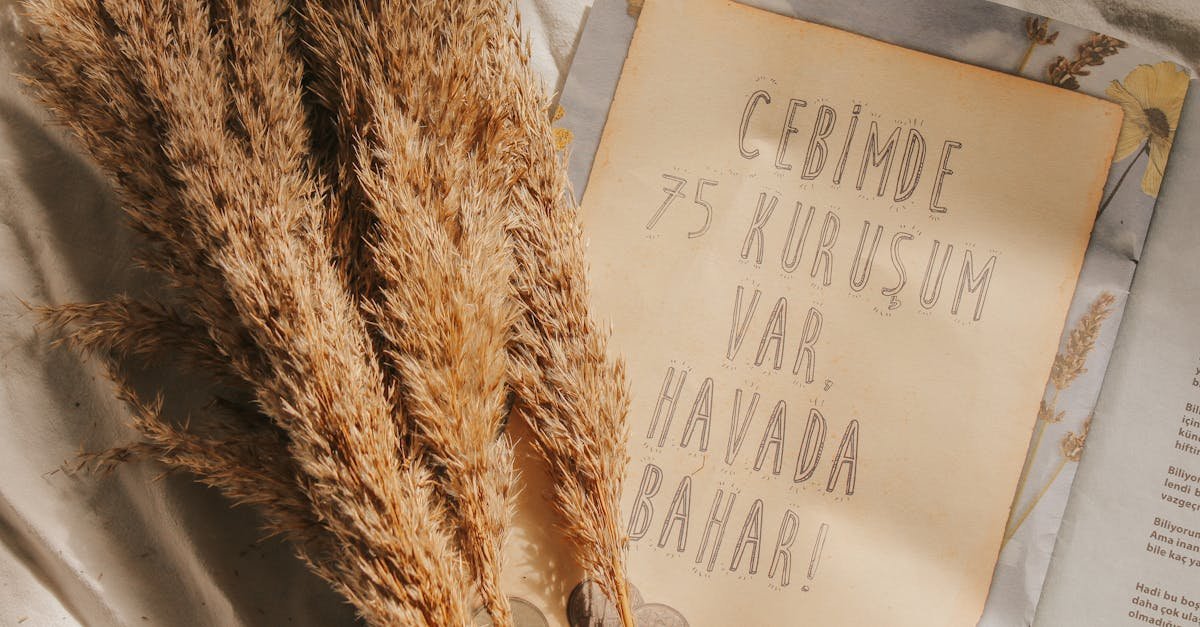 CEBİMDE
75 KURUŞUM
VAR,
HAVADA
BAHAR!
Bil
için
hiftin
Biliyor
lendi b
vazgeç
Biliyorum
Ama inan
bile kaç ya
Hadi bu boş
daha çok ula
olmadığı